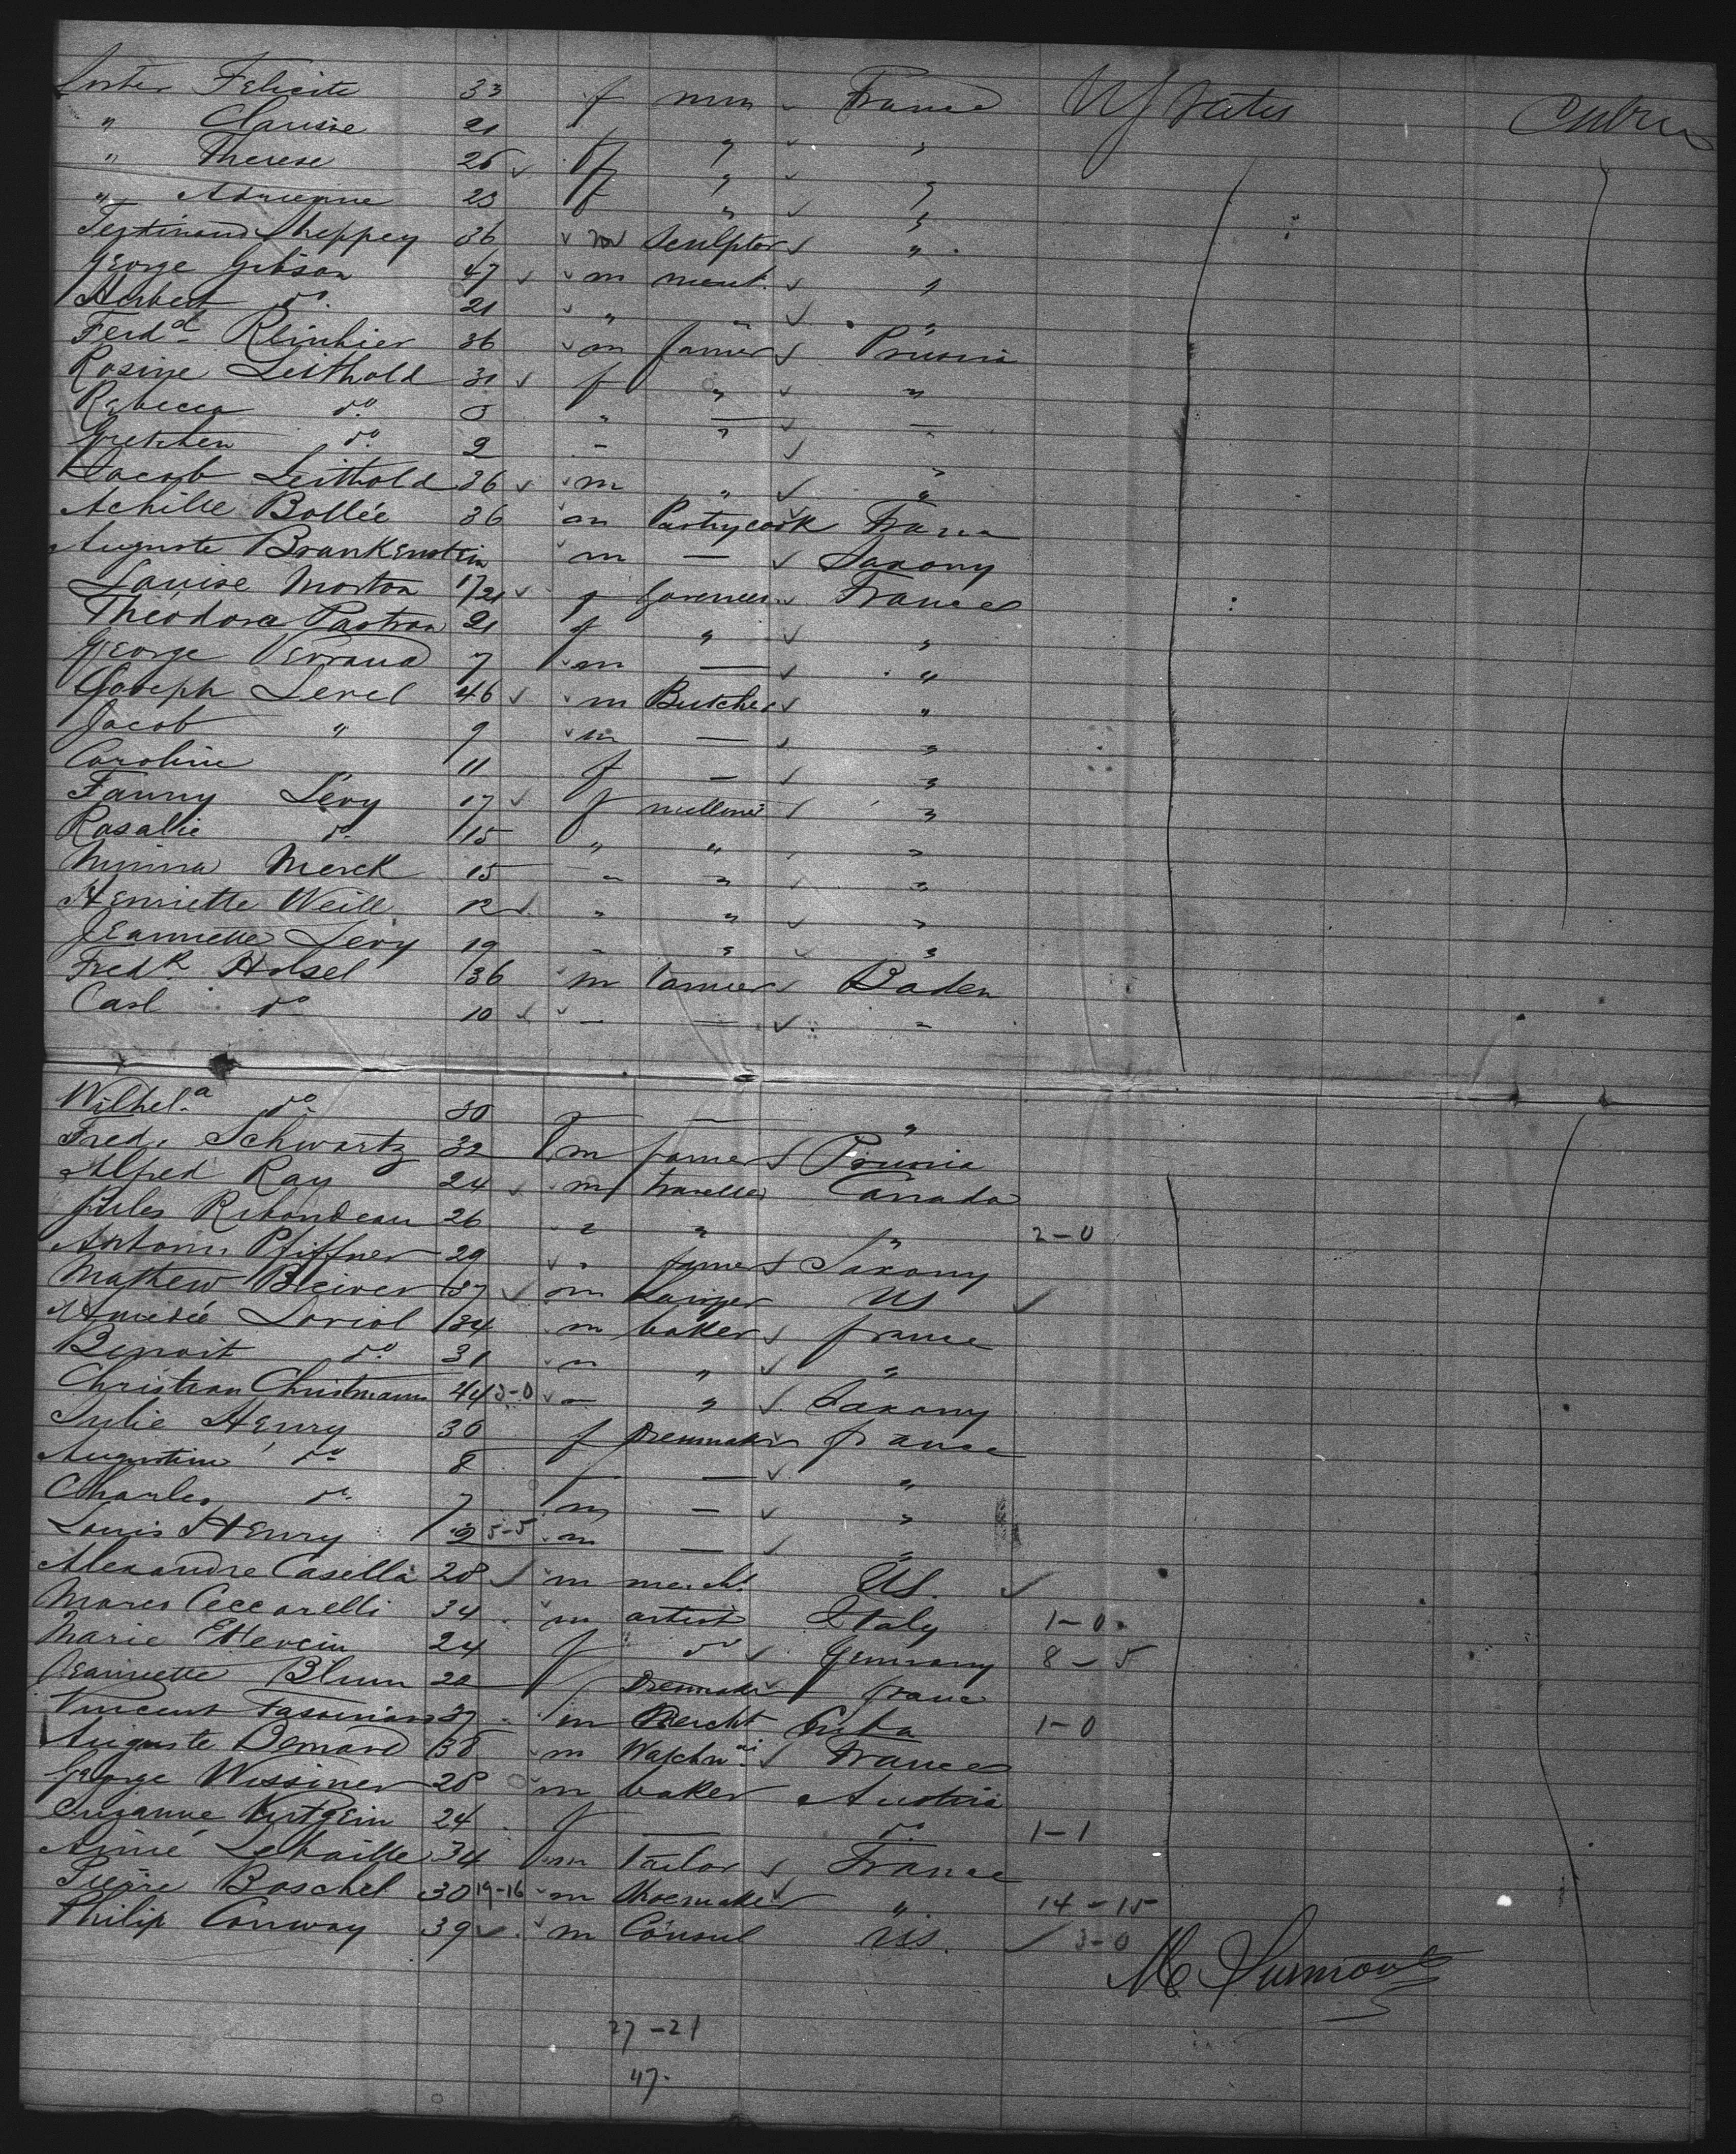 Sister Felicite 33 f nun France U States Cabin
" Clarisse 21 f " "
" Therese 26 f " "
" Adrienne 23 f " "
Ferdinand Sheppey 36 m Sculptor "
George Gibson 47 m mcut. "
Herbert do. 21 " " "
Ferdd Reinhier 36 m farmer Prussia
Rosine Leithold 31 f " "
Rebecca do. 5 " — "
Gretchen do. 2 " " "
Jacob Leithold 36 m " "
Achille Bollée 36 m Pastrycook France
Auguste Brankenstein m — Saxony
Louise Morton 21 f Governess France
Theodora Pastron 21 f " "
George Verrand 7 m — "
Joseph Level 46 m Butcher "
Jacob " 9 m — "
Caroline 11 f — "
Fanny Lévy 17 f milliner "
Rosalie do. 15 " " "
Minna Merck 15 " " "
Henriette Weill 12 " " "
Jeannette Levy 19 " " "
Fredk Holsel 36 m tanner Baden
Carl do 10 — — "
Wilhela do 30 f — "
Fred. Schwartz 32 m farmer Prussia
Alfred Ray 24 m traveller Canada
Jules Ribondeau 26 " " " 2-0
Antoni Pfiffner 29 " farmer Saxony
Mathew Bleiver 37 m Lawyer US
Amedée Loriol 34 m baker france
Benoit do. 31 m " "
Christian Christmann 44 3-0 m " Saxony
Julie Henry 30 f Dressmaker france
Augustine do 8 f — "
Charles do. 7 m — "
Louis Henry 2 5-5 m — "
Alexandre Casella 28 m mercht. US.
Marco Ceccarelli 34 m artist Italy 1-0
Marie 24 f do Germany 8-5
Jeannette Blum 20 f Dressmaker france
Vincent 37 m Mercht Cuba 1-0
Auguste Demard 38 m Watchm. France
George Wissiner 28 m baker Austria
Suzanne 24 f — do. 1-1
Aimé Lebaille 34 m Tailor France
Pierre Boschel 30 19-16 m Shoemaker " 14-15
Philip Conway 39 m Consul US. 3-0
M Surmont
27-21
47.